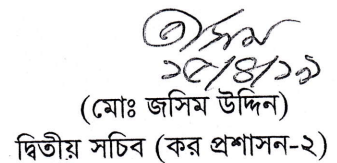 জসিম
১৫/৪/১৯
(মোঃ জসিম উদ্দিন)
দ্বিতীয় সচিব (কর প্রশাসন-২)